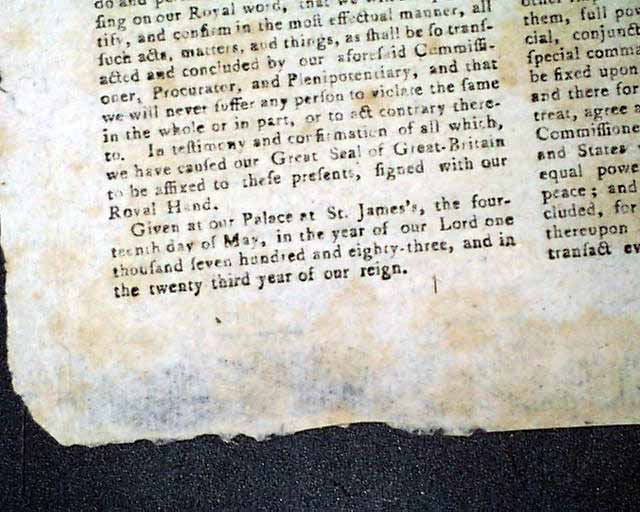 do and
sing on our Royal word, that we
tify, and confirm in the moſt effectual manner, all
ſuch acts, matters, and things, as ſhall be ſo tranſ-
acted and concluded by our aforeſaid Commiſſi-
oner, Procurator, and Plenipotentiary, and that
we will never ſuffer any perſon to violate the ſame
in the whole or in part, or to act contrary there-
to. In teſtimony and confirmation of all which,
we have cauſed our Great Seal of Great-Britain
to be affixed to theſe preſents, ſigned with our
Royal Hand.
Given at our Palace at St. James's, the four-
teenth day of May, in the year of our Lord one
thouſand ſeven hundred and eighty-three, and in
the twenty third year of our reign.
them, full
cial, conjunct
ſpecial comma
be fixed upon
and there for
treat, agree
Commiſſione
and States
equal powe
peace; and
cluded, for
thereupon
tranſact ev